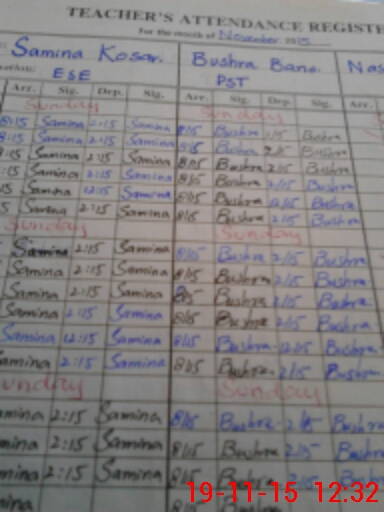 TEACHER'S ATTENDANCE REGISTE
For the month of November 2015
Samina Kosar. Bushra Bano. Nas
ESE PST
Arr. Sig. Dep. Sig. Arr. Sig. Dep. Sig. Arr.
Sunday Sunday
8:15 Samina 2:15 Samina 8/15 Bushra 2/15 Bushra
8:15 Samina 2:15 Samina 8/15 Bushra 2/15 Bushra
:15 Samina 2:15 Samina 8/15 Bushra 2/15 Bushra
:15 Samina 2:15 Samina 8/15 Bushra 2/15 Bushra
15 Samina 12:15 Samina 8/15 Bushra 12/15 Bushra
5 Samina 2:15 Samina 8/15 Bushra 2/15 Bushra
Sunday Sunday
Samina 2:15 Samina 8/15 Bushra 2/15 Bushra
Samina 2:15 Samina 8/15 Bushra 2/15 Bushra
Samina 2:15 Samina 8/15 Bushra 2/15 Bushra
Samina 2:15 Samina 8/15 Bushra 2/15 Bushra
Samina 12:15 Samina 8/15 Bushra 12/15 Bushra
Samina 2:15 Samina 8/15 Bushra 2/15 Bushra
unday Sunday
amina 2:15 Samina 8/15 Bushra 2/15 Bushra
mina 2:15 Samina 8/15 Bushra 2/15 Bush
mina 2:15 Samina 8/15 Bushra 2/15 Bush
mina
19-11-15 12:32